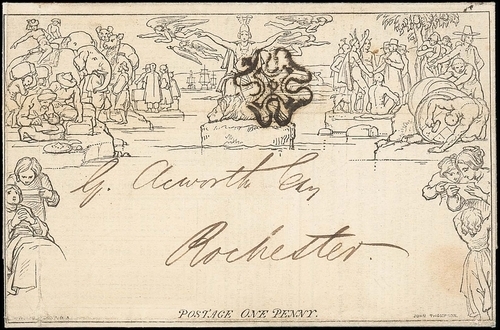 G. Acworth Esq
Rochester.
POSTAGE ONE PENNY.